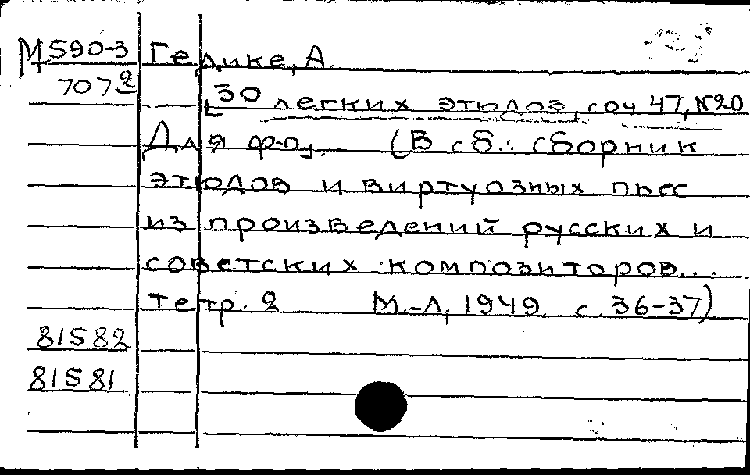 М590-3 Гедике, А.
7072
[30 легких этюдов, соч 47, №20
Для ф-п, — (В сб.: сборник
этюдов и виртуозных пьес
из произведений русских и
советских композиторов...
тетр. 2 М.-Л, 1949 с 36-37)
81582
81581